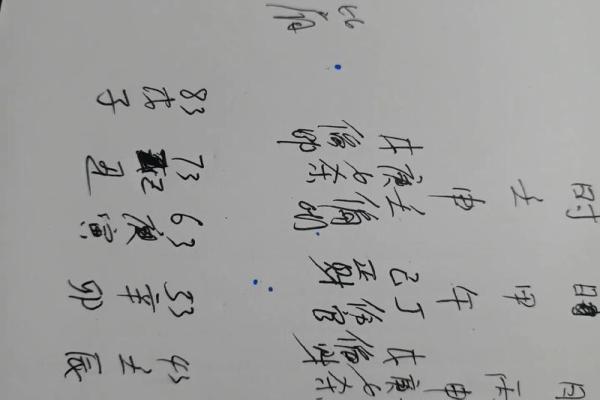 时 日 月
壬 甲
申 午 申
戊 庚 壬 己 丁 戊 庚
偏 七 偏 正 伤 偏 七
财 杀 印 财 官 财 杀
83 73 63 53 43
戊 己 庚 辛 壬
子 丑 寅 卯 辰